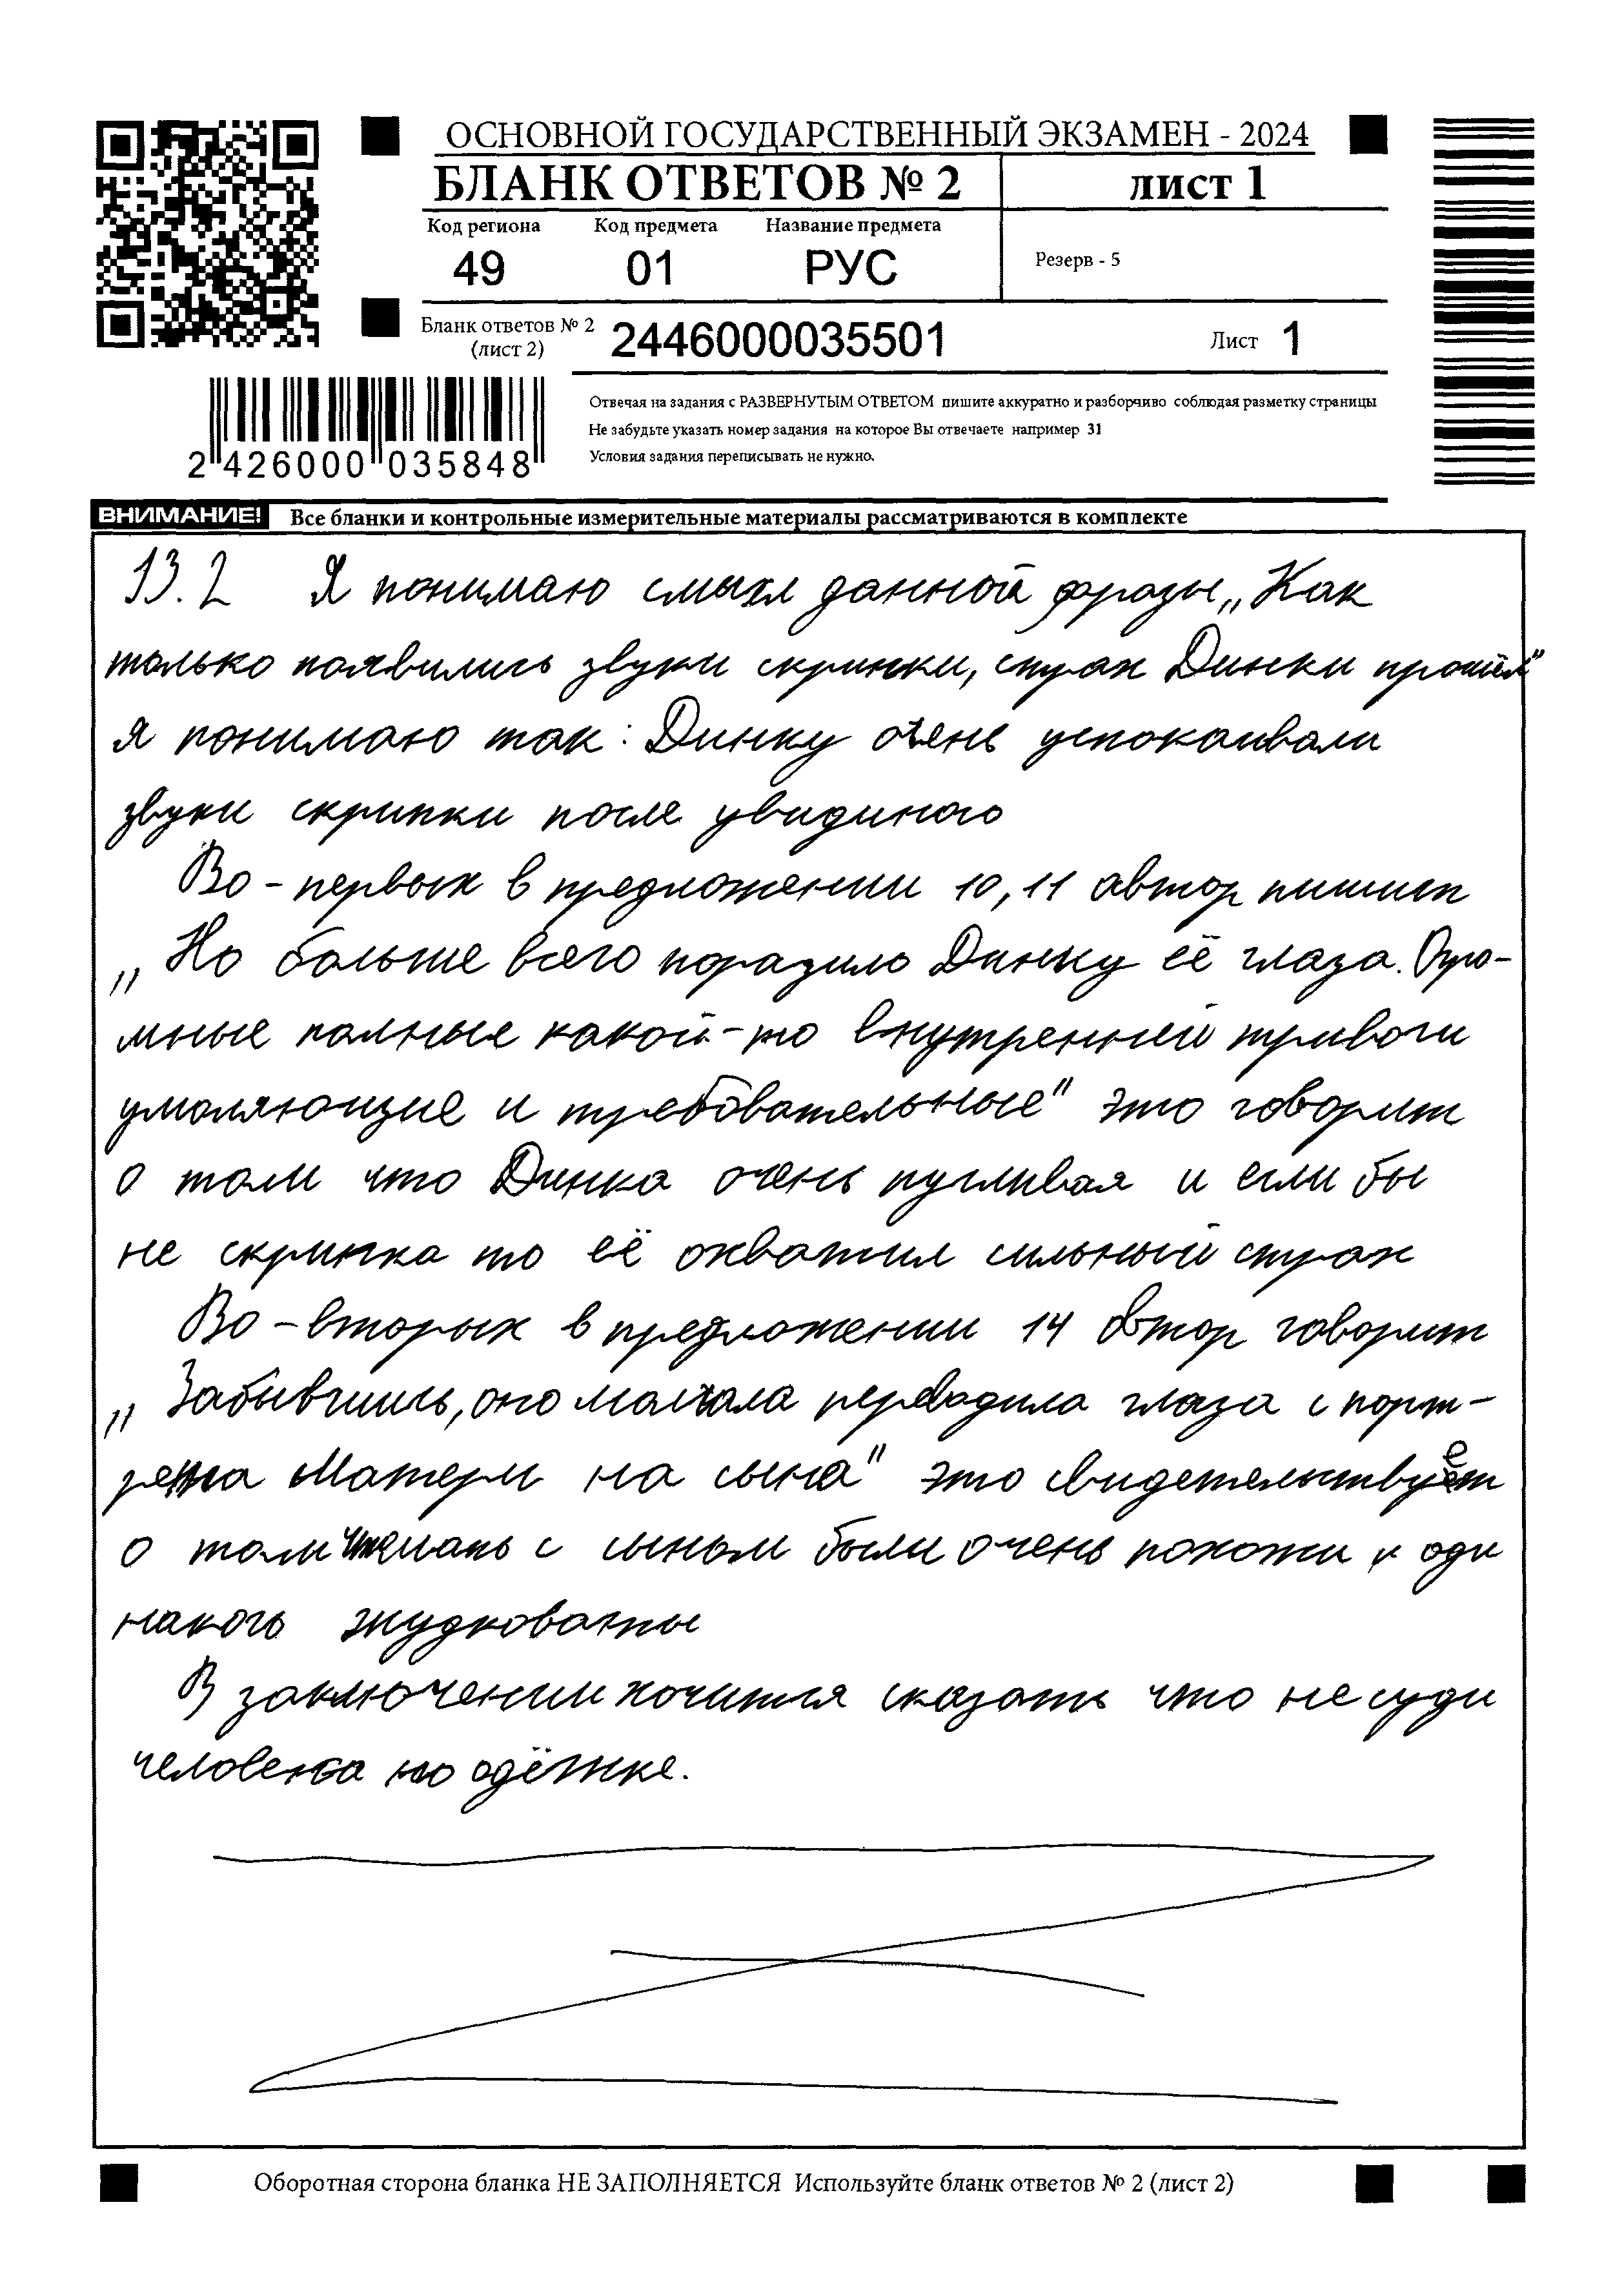 ОСНОВНОЙ ГОСУДАРСТВЕННЫЙ ЭКЗАМЕН - 2024
БЛАНК ОТВЕТОВ № 2
лист 1
Код региона Код предмета Название предмета
49 01 РУС
Резерв - 5
Бланк ответов № 2
(лист 2)
2446000035501
Лист 1
Отвечая на задания с РАЗВЕРНУТЫМ ОТВЕТОМ пишите аккуратно и разборчиво соблюдая разметку страницы
Не забудьте указать номер задания на которое Вы отвечаете например 31
Условия задания переписывать не нужно.
2 426000 035848
ВНИМАНИЕ! Все бланки и контрольные измерительные материалы рассматриваются в комплекте
13.2 Я понимаю смысл данной фразы „Как
только появились звуки скрипки, страх Динки прошёл"
я понимаю так: Динку очень успокаивали
звуки скрипки после увидиного
Во-первых в предложении 10, 11 автор пишит
„Но больше всего поразило Динку её глаза. Огро-
мные полные какой-то внутренней тривоги
умоляющие и требовательные" это говорит
о том что Динка очень пугливая и если бы
не скрипка то её охватил сильный страх
Во-вторых в предложении 14 автор говорит
„Забывшись, оно молчала переводила глаза с порт-
рета Матери на сына" это свидетельствует
о том что мать с сыном были очень похожи и оди
накого жудковаты
В заключении хочится сказать что не суди
человека по одёжке.
Оборотная сторона бланка НЕ ЗАПОЛНЯЕТСЯ Используйте бланк ответов № 2 (лист 2)